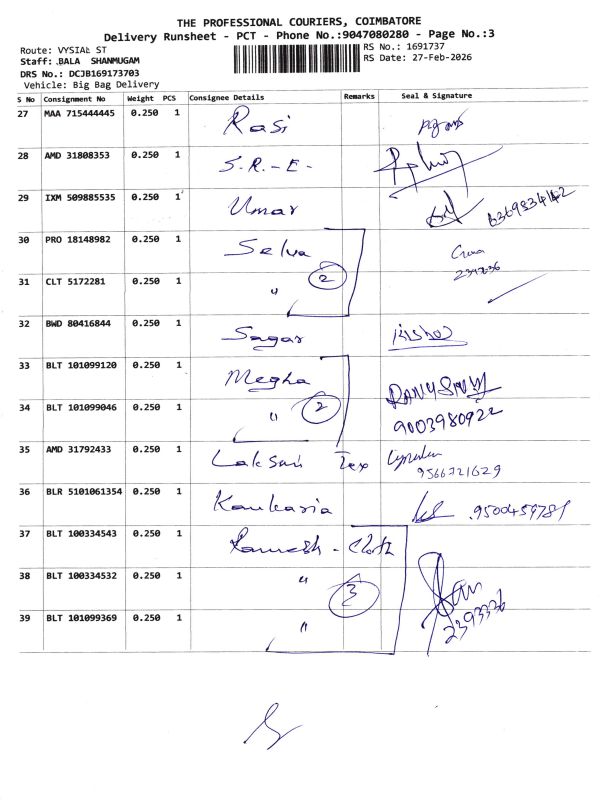 THE PROFESSIONAL COURIERS, COIMBATORE
Delivery Runsheet - PCT - Phone No.:9047080280 - Page No.:3
Route: VYSIAL ST
RS No.: 1691737
Staff: BALA SHANMUGAM
RS Date: 27-Feb-2026
DRS No.: DCJB169173703
Vehicle: Big Bag Delivery
S No Consignment No Weight PCS Consignee Details Remarks Seal & Signature
27 MAA 715444445 0.250 1 Rasi
28 AMD 31808353 0.250 1 S.R.-E-
29 IXM 509885535 0.250 1 Umar
30 PRO 18148982 0.250 1 Selva
31 CLT 5172281 0.250 1 " 2
32 BWD 80416844 0.250 1 Sagar
33 BLT 101099120 0.250 1 Megha
34 BLT 101099046 0.250 1 " 2 9003980922
35 AMD 31792433 0.250 1 Tex 9566721629
36 BLR 5101061354 0.250 1 Kankaria
37 BLT 100334543 0.250 1 Ramesh - Cloth
38 BLT 100334532 0.250 1 " 3
39 BLT 101099369 0.250 1 " 2393336